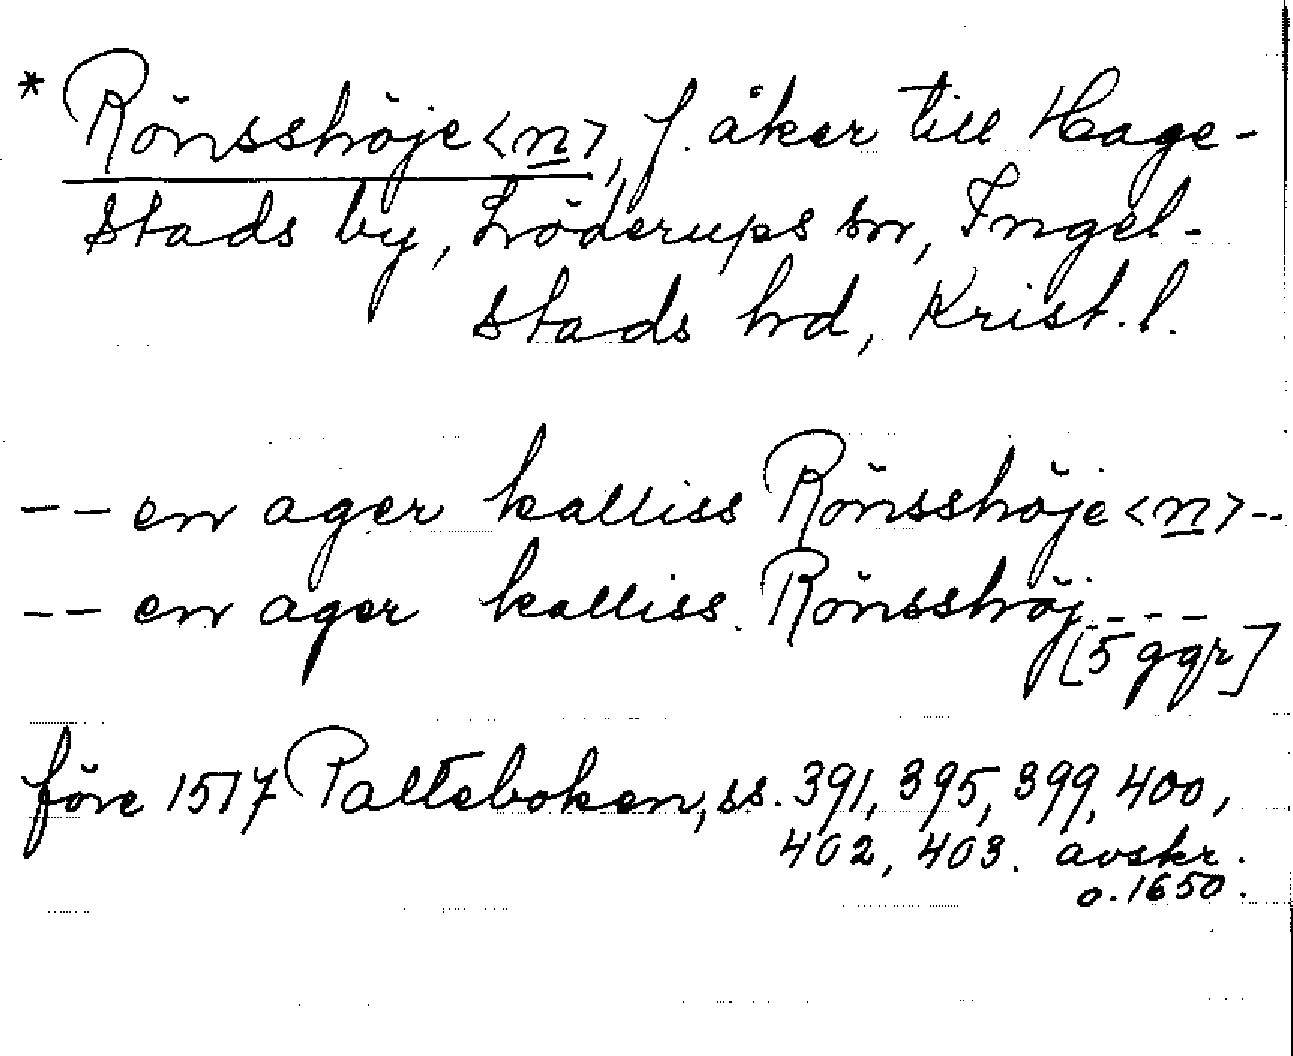 * Rönsshöje<n>, f. åker till Hage-
stads by, Löderups sn, Ingel-
stads hd, Krist. l.
-- en ager kalliss Rönsshöje<n>--
-- en ager kalliss Rönsshöj---
[5 ggr]
före 1517 Palteboken, ss. 391, 395, 399, 400,
402, 403. avskr.
o. 1650.